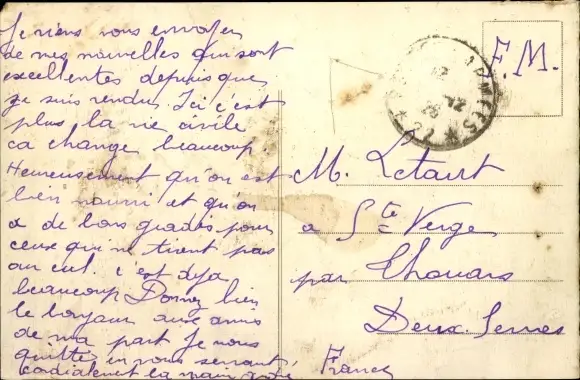 Je viens vous envoyer
de mes nouvelles qui sont
excellentes depuis que
je suis rendu. Ici c'est
plus la vie civile
ca change beaucoup.
Heureusement qu'on est
bien nourri et qu'on
a de bons gradés pour
ceux qui ne tirent pas
au cul. c'est déja
beaucoup Donnez bien
le bonjour aux amis
de ma part Je vous
quitte en vous serrant
cordialement la main
F.M.
M. Letart
a Ste Verge
par Thouars
Deux-Sevres
France